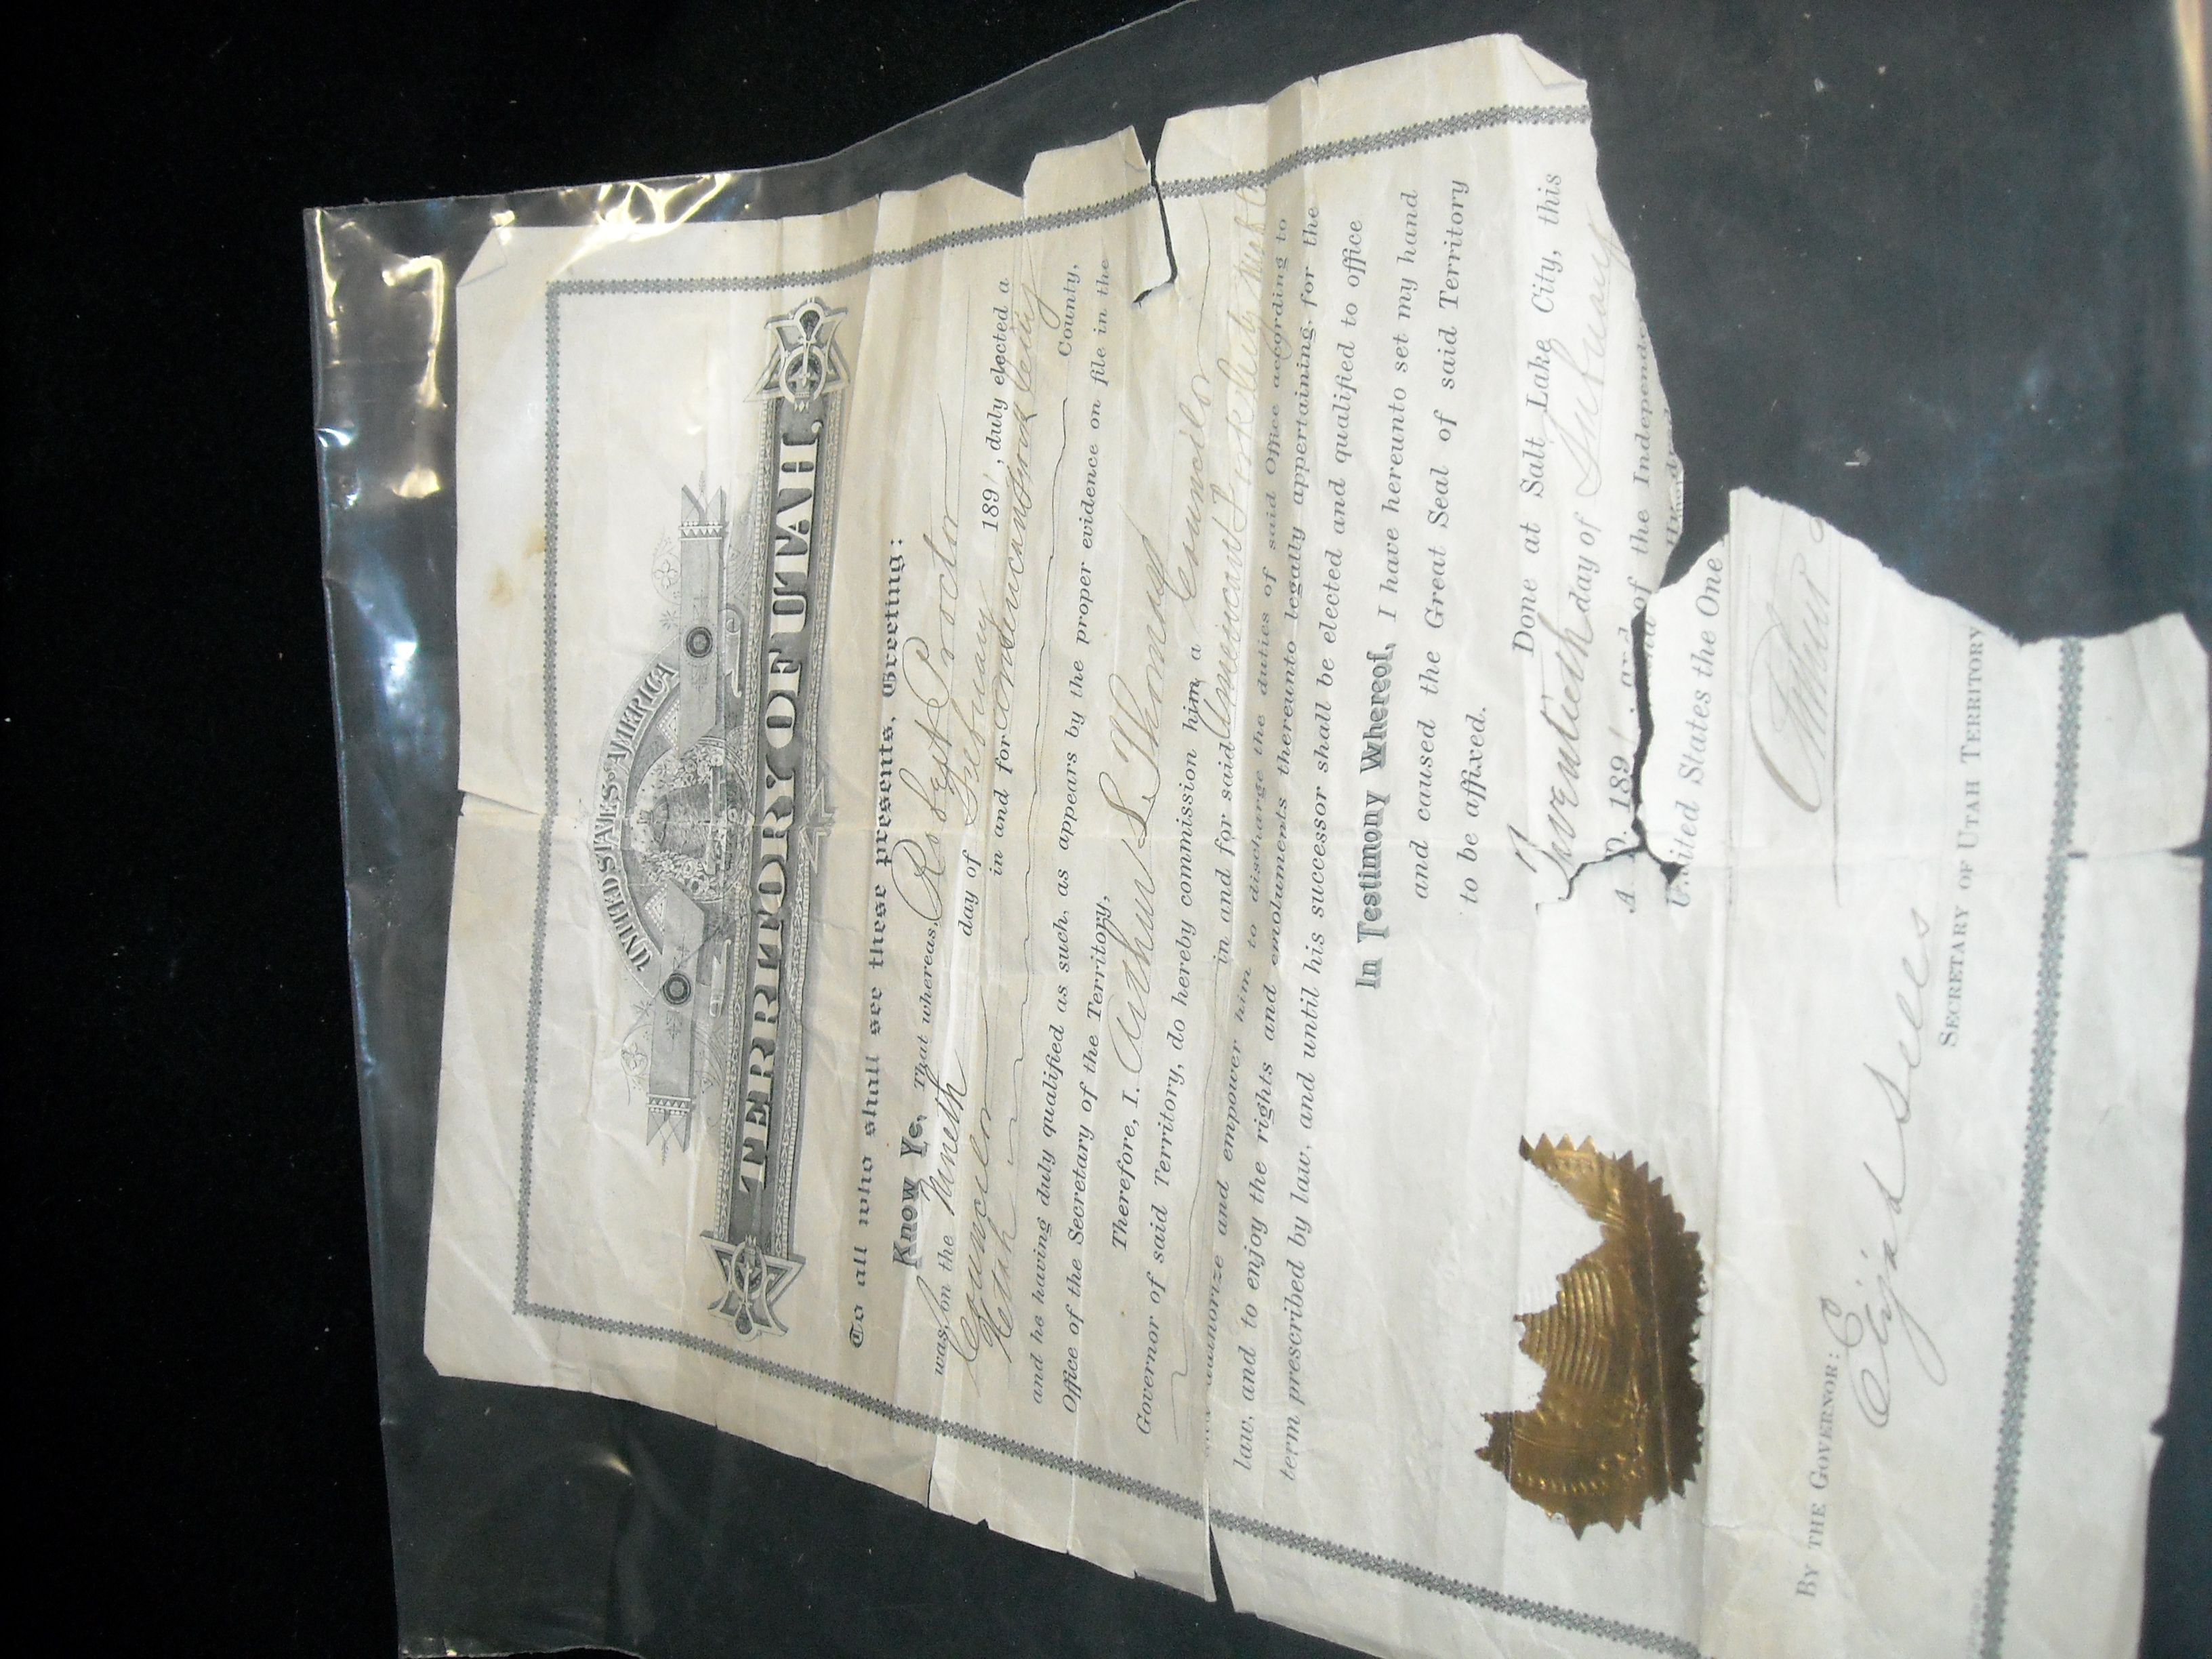 UNITED STATES OF AMERICA
TERRITORY OF UTAH,
To all who shall see these presents, Greeting:
Know Ye, That whereas, Robert Proctor
was, on the Nineth day of February 1891, duly elected a
Councilor in and for American Fork City
Utah County,
and he having duly qualified as such, as appears by the proper evidence on file in the
Office of the Secretary of the Territory,
Therefore, I, Arthur L. Thomas
Governor of said Territory, do hereby commission him, a Councilor
in and for said American Fork City
authorize and empower him to discharge the duties of said Office according to
law, and to enjoy the rights and emoluments thereunto legally appertaining, for the
term prescribed by law, and until his successor shall be elected and qualified to office
In Testimony Whereof, I have hereunto set my hand
and caused the Great Seal of said Territory
to be affixed.
Done at Salt Lake City, this
Twentieth day of February
A. D. 1891, and of the Independence
United States the One Hundred
Arthur
By the Governor:
Elijah Sells
Secretary of Utah Territory